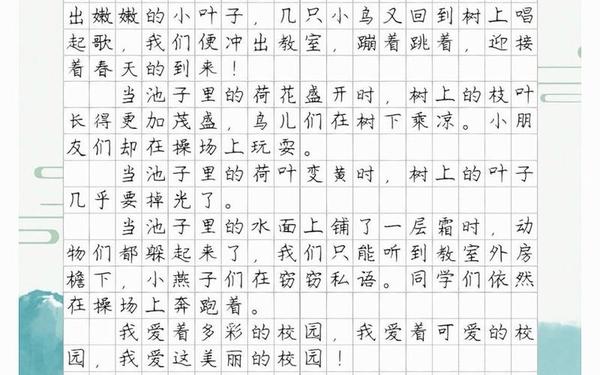 出嫩嫩的小叶子，几只小鸟又回到树上唱
起歌，我们便冲出教室，蹦着跳着，迎接
着春天的到来！
当池子里的荷花盛开时，树上的枝叶
长得更加茂盛，鸟儿们在树下乘凉。小朋
友们却在操场上玩耍。
当池子里的荷叶变黄时，树上的叶子
几乎要掉光了。
当池子里的水面上铺了一层霜时，动
物们都躲起来了，我们只能听到教室外房
檐下，小燕子们在窃窃私语。同学们依然
在操场上奔跑着。
我爱着多彩的校园，我爱着可爱的校
园，我爱这美丽的校园！